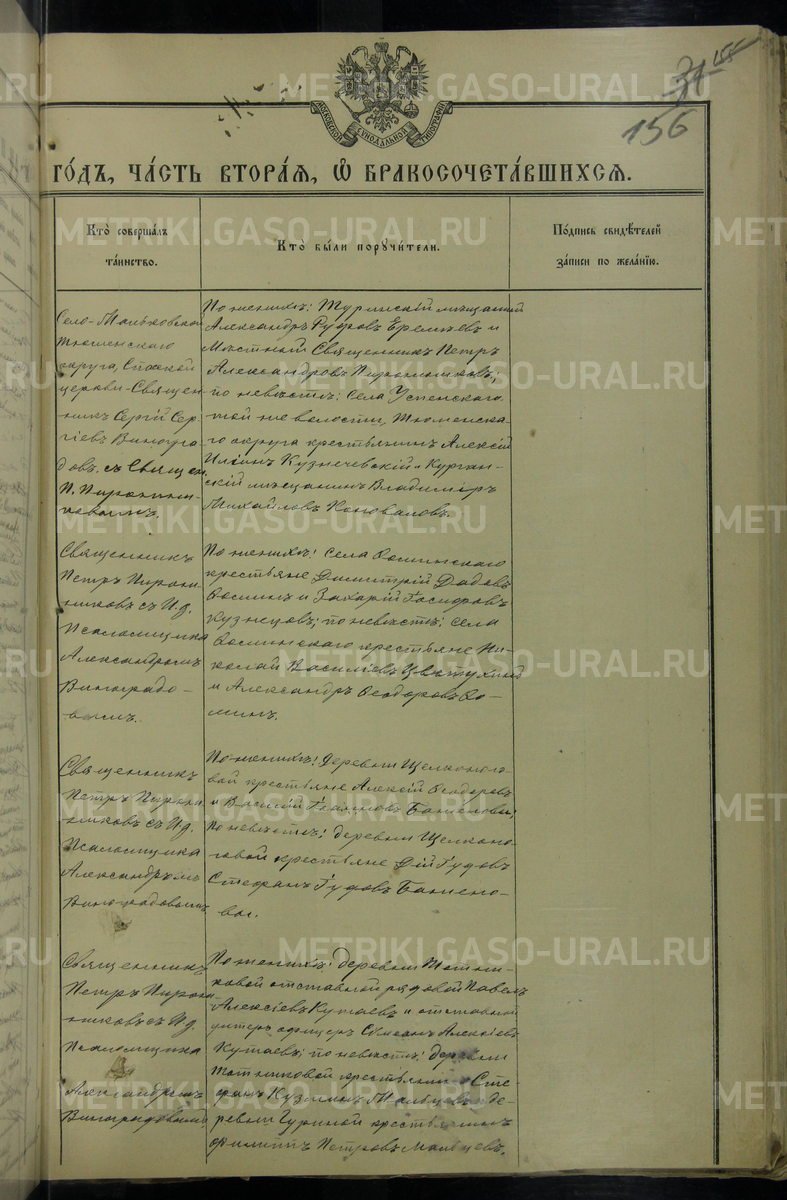 155
31
156
МОСКОВСКОЙ СѴНОДАЛЬНОЙ ТИПОГРАФІИ
ГО́ДЪ, ЧА́СТЬ ВТОРА́Я, Ѡ҆ БРАКОСОЧЕТА́ВШИХСЯ.
Кто̀ соверша́лъ
та́инство.
Кто̀ бы́ли поручи́тели.
По́дпись свидѣ́телей
за́писи по жела́нію.
Село-Мальковской
Тюменскаго
округа, Спаской
церкви-Священ-
никъ Сергій Сер-
гіевъ Виногра-
довъ съ Священ.
П. Пирожни-
ковымъ.
По женихѣ: Туринскій мѣщанинъ
Александръ Руфовъ Еремѣевъ и
Мѣстный Священникъ Петръ
Александровъ Пирожниковъ;
по невѣстѣ: села Успенскаго
той же волости, Тюменска-
го округа крестьянинъ Алексій
Иліинъ Кузнечевскій и Курган-
скій мѣщанинъ Владиміръ
Михайловъ Коноваловъ.
Священникъ
Петръ Пирож-
никовъ съ И.д.
Псаломщика
Александромъ
Виноградо-
вымъ.
По женихѣ: села Фоминскаго
крестьяне Димитрій
Фоминъ и Захарій
Кузнецовъ; по невѣстѣ: села
Фоминскаго крестьяне Ни-
колай Василіевъ Цвѣтухинъ
и Александръ Ѳеодоровъ Фо-
минъ.
Священникъ
Петръ Пирож-
никовъ съ И.д.
Псаломщика
Александромъ
Виноградовымъ
По женихѣ: деревни Щелконого-
вой крестьяне Алексій Ѳеодоровъ
и Василій Іоанновъ
по невѣстѣ: деревни Щелконо-
говой крестьяне
Стефанъ
вы.
Священникъ
Петръ Пирож-
никовъ съ И.д.
Псаломщика
Александромъ
Виноградовымъ
По женихѣ: деревни
ковой отставной рядовой Павелъ
Алексіевъ Кутаевъ и отставной
унтеръ офицеръ Симеонъ Алексіевъ
Кутаевъ; по невѣстѣ: деревни
крестьянинъ Сте-
фанъ Кузминъ Мальцевъ и де-
ревни Гуриной крестьянинъ
Филиппъ Петровъ Мальцевъ.
METRIKI.GASO-URAL.RU